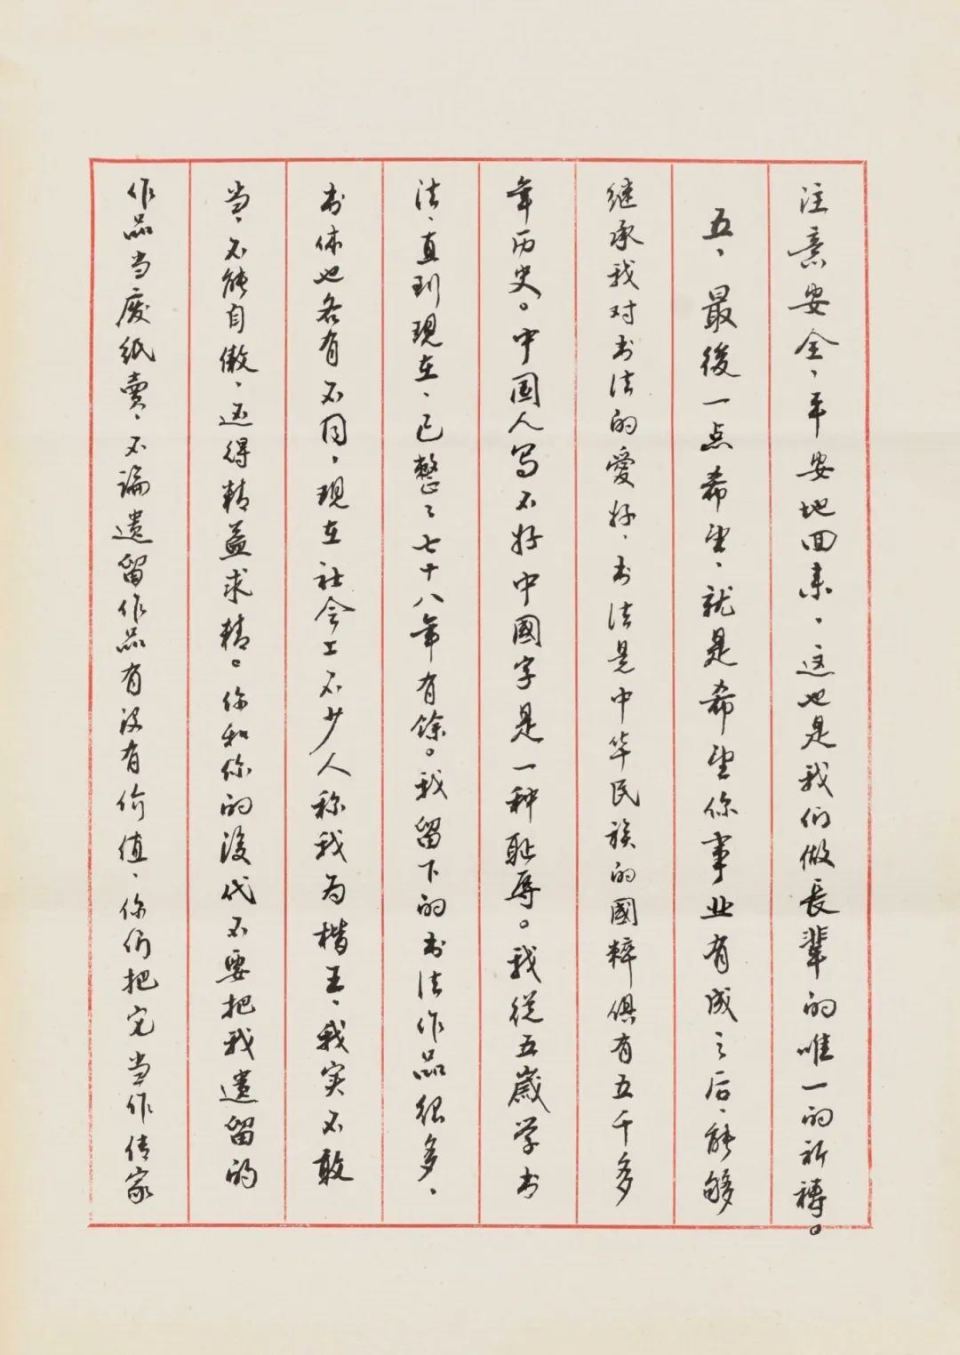 注意安全，平安地回来，这也是我们做长辈的唯一的祈祷。
五、最後一点希望，就是希望你事业有成之后，能够
继承我对书法的爱好，书法是中华民族的國粹俱有五千多
年历史。中國人写不好中國字是一种耻辱。我從五歲学书
法，直到現在，已整〻七十八年有馀。我留下的书法作品很多，
书体也各有不同，現在社会上不少人称我为楷王，我实不敢
当，不能自傲，还得精益求精。你和你的後代不要把我遗留的
作品当废纸賣，不論遗留作品有没有价值，你们把它当作传家